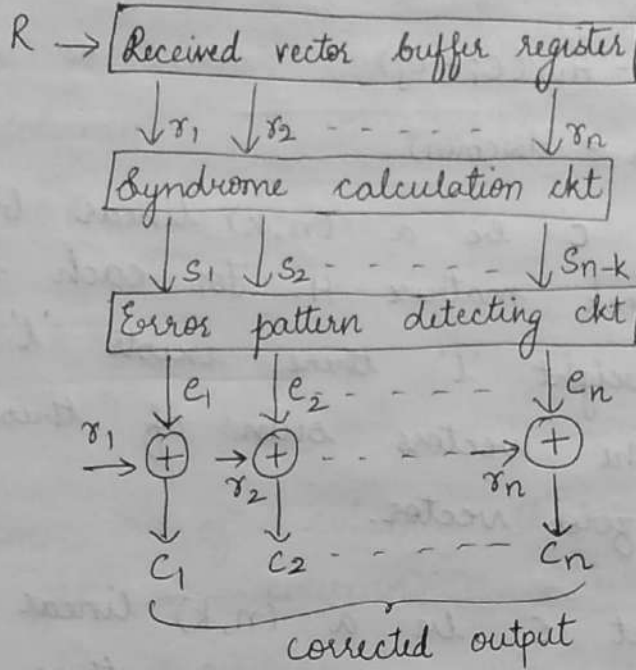 R → Received vector buffer register
r₁ r₂ - - - - - rₙ
Syndrome calculation ckt
S₁ S₂ - - - - - Sₙ₋ₖ
Error pattern detecting ckt
e₁ e₂ - - - - eₙ
r₁ → + r₂ → + - - - - rₙ → +
C₁ C₂ - - - - - Cₙ
corrected output